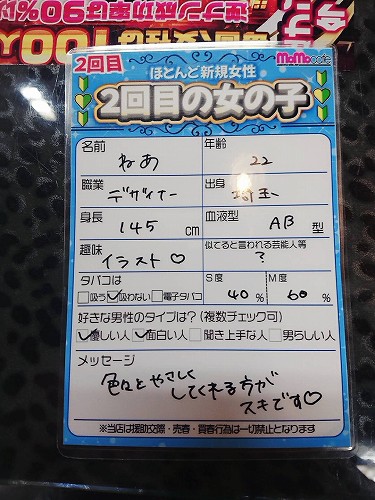 逆ナン成功率は90%以
2回目
ほとんど新規女性
MoMocafe
2回目の女の子
名前
ねあ
年齢
22
職業
デザイナー
出身
埼玉
身長
145cm
血液型
AB型
趣味
イラスト♡
似てると言われる芸能人等
?
タバコは
□吸う ☑吸わない □電子タバコ
S度
40%
M度
60%
好きな男性のタイプは?(複数チェック可)
☑優しい人 ☑面白い人 □聞き上手な人 □男らしい人
メッセージ
色々とやさしく
してくれる方が
スキです♡
※当店は援助交際・売春・買春行為は一切禁止となります